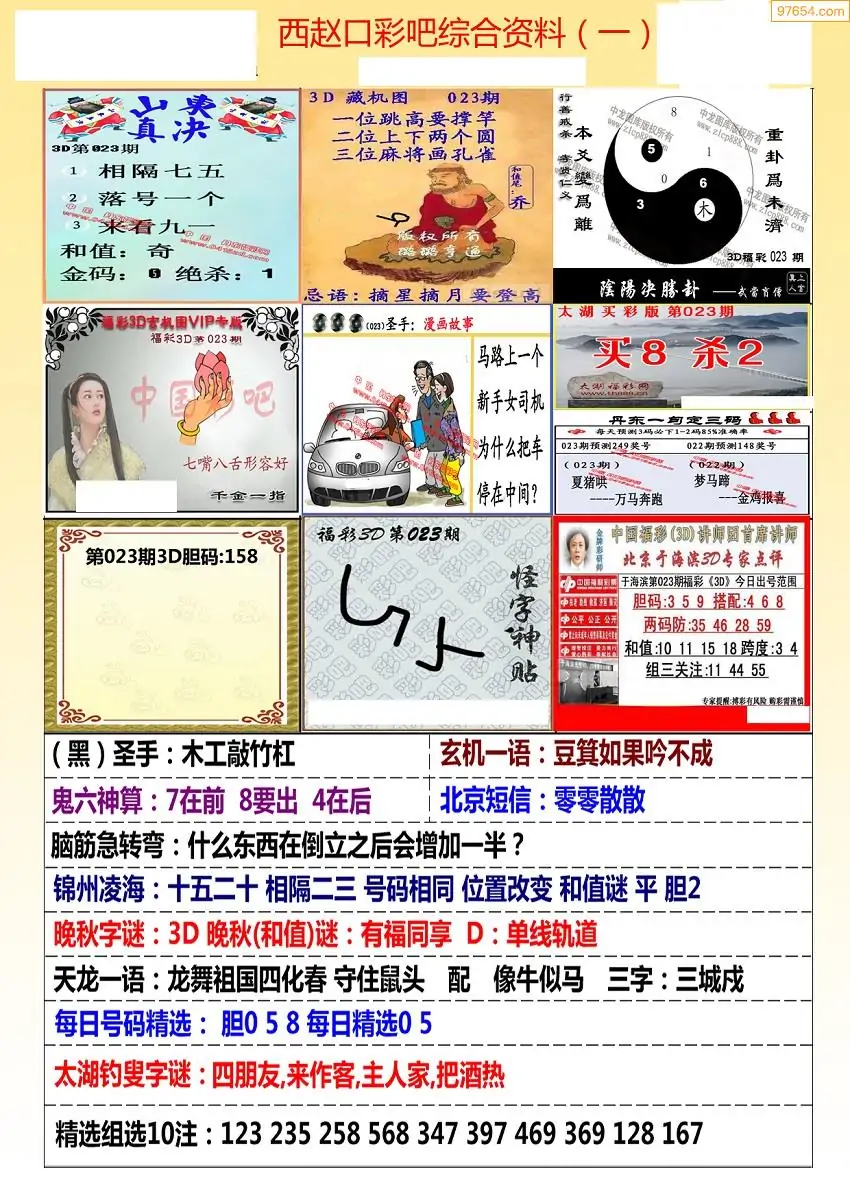 97654.com
西赵口彩吧综合资料（一）
山東
真决
3D第023期
1 相隔七五
2 落号一个
3 来看九一
和值：奇
金码：0 绝杀：1
3D 藏机图 023期
一位跳高要撑竿
二位上下两个圆
三位麻将画孔雀
和值尾：乔
版权所有
璐璐亨通
忌语：摘星摘月要登高
行善戒杀 孝贤仁义
本爻變爲離
重卦爲未濟
8
5
1
0
6
3
木
中龙图库版权所有
www.zlcp888.com
3D福彩 023 期
陰陽決勝卦 ——武當肖僧
福彩3D玄机图VIP专版
福彩3D第023期
中国彩吧
七嘴八舌形容好
千金一指
(023)圣手：漫画故事
马路上一个
新手女司机
为什么把车
停在中间？
太湖买彩版 第023期
买8 杀2
太湖福彩网
丹东一句定三码
每天预测3码必下1-2码85%准确率
023期预测249奖号 022期预测148奖号
（023期） （022期）
夏猪哄 梦马蹄
----万马奔跑 ----金鸡报喜
第023期3D胆码:158
福彩3D第023期
怪字神贴
金牌彩研师
中国福彩(3D)讲师团首席讲师
北京于海滨3D专家点评
中国福利彩票
于海滨第023期福彩《3D》今日出号范围
胆码:3 5 9 搭配:4 6 8
公平 公正 公开
两码防:35 46 28 59
和值:10 11 15 18 跨度:3 4
组三关注:11 44 55
专家提醒:搏彩有风险 购彩需谨慎
（黑）圣手：木工敲竹杠
玄机一语：豆箕如果吟不成
鬼六神算：7在前 8要出 4在后
北京短信：零零散散
脑筋急转弯：什么东西在倒立之后会增加一半？
锦州凌海：十五二十 相隔二三 号码相同 位置改变 和值谜 平 胆2
晚秋字谜：3D 晚秋(和值)谜：有福同享 D：单线轨道
天龙一语：龙舞祖国四化春 守住鼠头 配 像牛似马 三字：三城戍
每日号码精选： 胆0 5 8 每日精选0 5
太湖钓叟字谜：四朋友,来作客,主人家,把酒热
精选组选10注：123 235 258 568 347 397 469 369 128 167